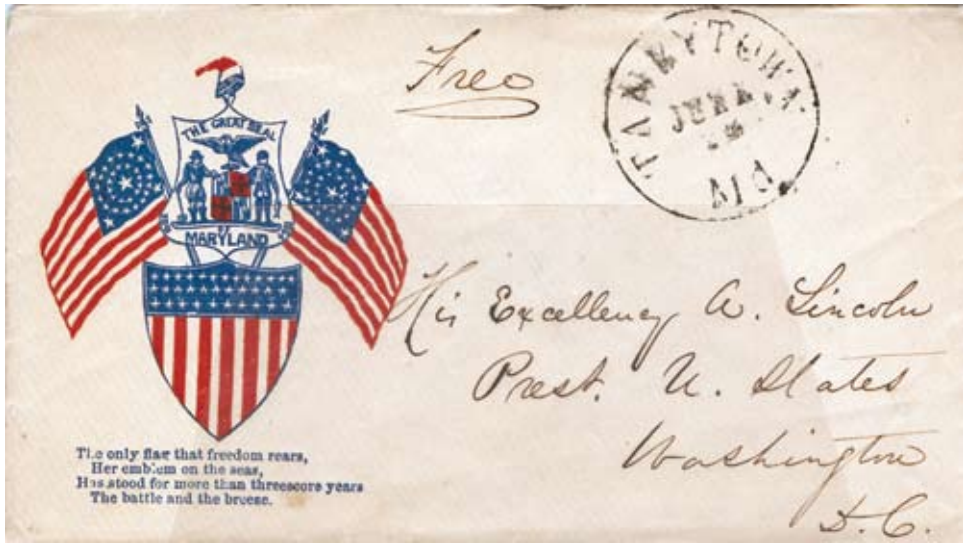 Free
TANEYTOWN
JUN
Md
THE GREAT SEAL
OF
MARYLAND
His Excellency A. Lincoln
Prest. U. States
Washington
D.C.
The only flag that freedom rears,
Her emblem on the seas,
Has stood for more than threescore years
The battle and the breese.